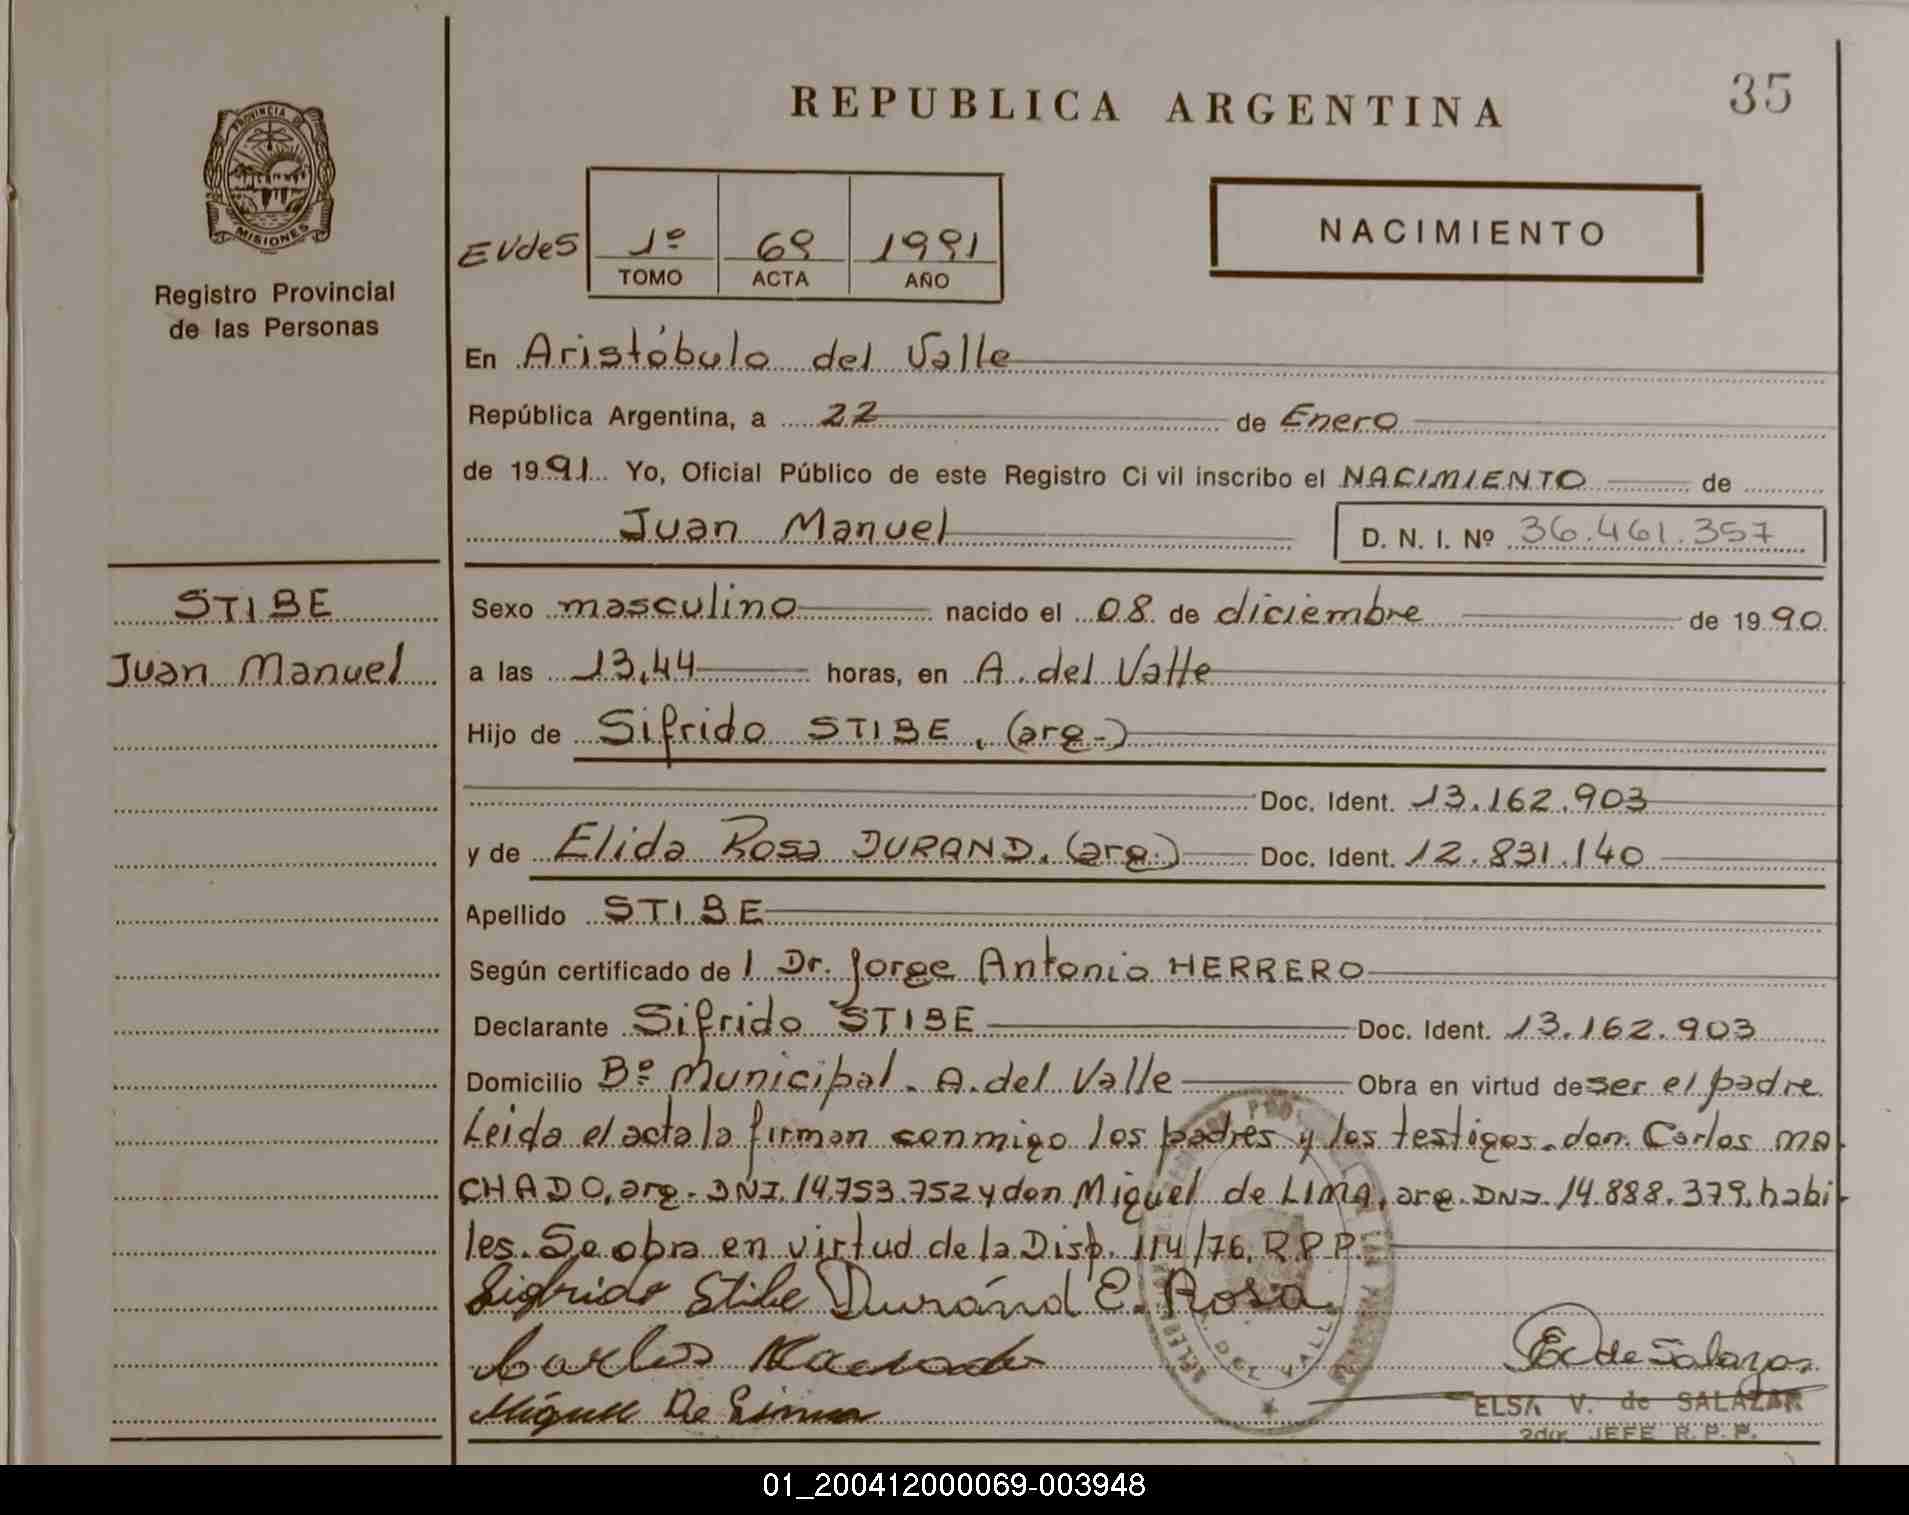 35
REPUBLICA ARGENTINA
PROVINCIA DE
MISIONES
Registro Provincial
de las Personas
EVdeS
1º 69 1991
TOMO ACTA AÑO
NACIMIENTO
En Aristóbulo del Valle
República Argentina, a 22 de Enero
de 1991 Yo, Oficial Público de este Registro Ci vil inscribo el NACIMIENTO de
Juan Manuel D. N. I. Nº 36.461.357
STIBE
Juan Manuel
Sexo masculino nacido el 08 de diciembre de 1990
a las 13,44 horas, en A. del Valle
Hijo de Sifrido STIBE, (arg.)
Doc. Ident. 13.162.903
y de Elida Rosa DURAND. (arg.) Doc. Ident. 12.831.140
Apellido STIBE
Según certificado de l Dr. Jorge Antonio HERRERO
Declarante Sifrido STIBE Doc. Ident. 13.162.903
Domicilio Bº Municipal. A. del Valle Obra en virtud de ser el padre
Leida el acta la firman conmigo los padres y los testigos. don Carlos MA-
CHADO, arg. DNI. 14.753.752 y don Miguel de LIMA, arg. DNI. 14.888.379. habi-
les. Se obra en virtud de la Disp. 114/76. R.P.P.
Sigfrido Stibe Duránd E. Rosa
Carlos Machado
Miguel De Lima
E de Salazar
ELSA V. de SALAZAR
JEFE R.P.P.
A. DEL VALLE
01_200412000069-003948